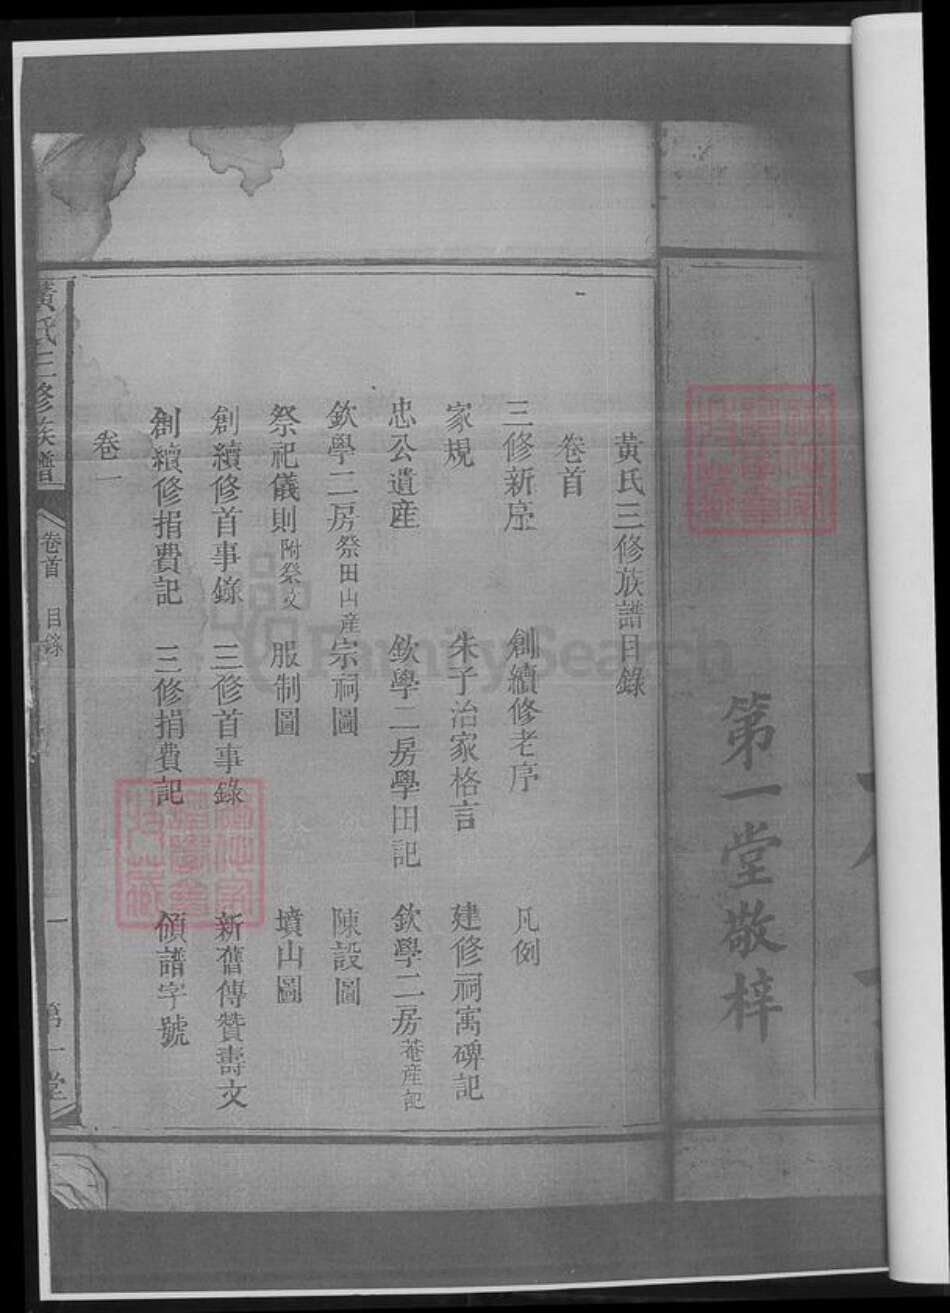 第一堂敬梓
黃氏三修族譜目錄
卷首
三修新序 創續修老序 凡例
家規 朱子治家格言 建修祠寓碑記
忠公遺産 欽學二房學田記 欽學二房菴産記
欽學二房祭田山産 宗祠圖 陳設圖
祭祀儀則附祭文 服制圖 墳山圖
創續修首事錄 三修首事錄 新舊傳贊壽文
創續修捐費記 三修捐費記 領譜字號
卷一
黃氏三修族譜 卷首 目錄 一 第一堂
FamilySearch